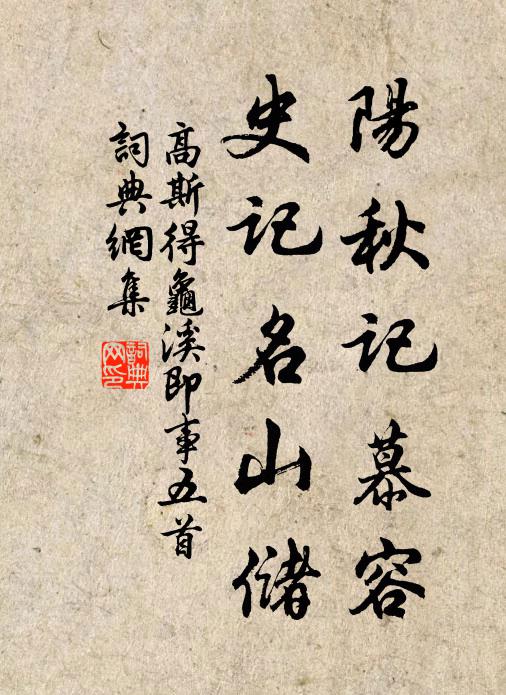 陽秋記慕容
史記名山儲
高斯得龜溪即事五首
詞典網集
詞典網印